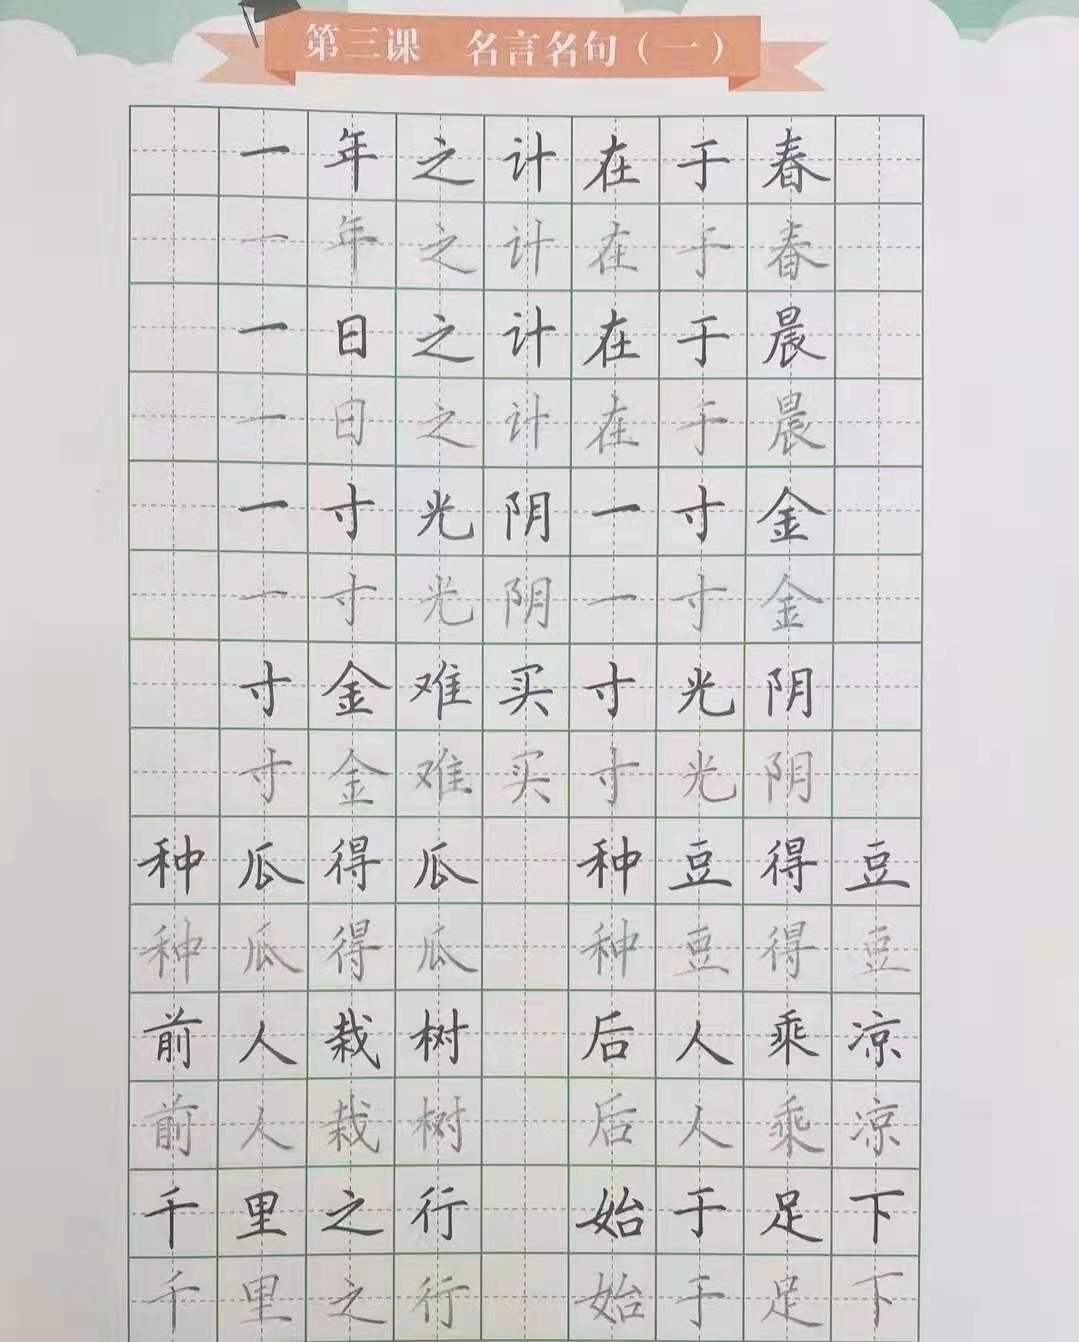 第三课 名言名句（一）
一年之计在于春
一年之计在于春
一日之计在于晨
一日之计在于晨
一寸光阴一寸金
一寸光阴一寸金
寸金难买寸光阴
寸金难买寸光阴
种瓜得瓜 种豆得豆
种瓜得瓜 种豆得豆
前人栽树 后人乘凉
前人栽树 后人乘凉
千里之行 始于足下
千里之行 始于足下